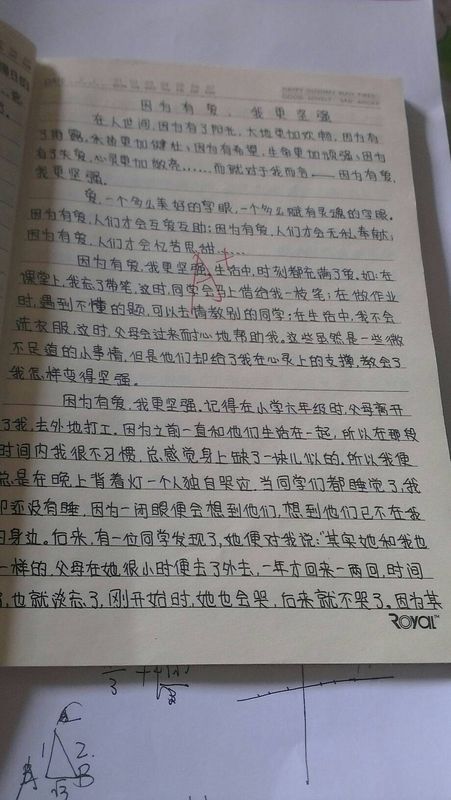 因为有爱，我更坚强
在人世间，因为有了阳光，大地更加欢畅，因为有
了雨露，禾苗更加健壮；因为有希望，生命更加顽强；因为
有了关爱，心灵更加敞亮……而就对于我而言——因为有爱，
我更坚强。
爱，一个多么美好的字眼，一个多么赋有灵魂的字眼。
因为有爱，人们才会互爱互助；因为有爱，人们才会无私奉献；
因为有爱，人们才会忆苦思甜……
因为有爱，我更坚强，生活中，时刻都充满了爱。如：在
课堂上，我忘了带笔，这时，同学会马上借给我一枝笔；在做作业
时，遇到不懂的题，可以去请教别的同学；在生活中，我不会
洗衣服，这时，父母会过来耐心地帮助我。这些虽然是一些微
不足道的小事情，但是他们却给了我在心灵上的支撑，教会了
我怎样变得坚强。
因为有爱，我更坚强。记得在小学六年级时，父母离开
了我，去外地打工。因为之前一直和他们生活在一起，所以在那段
时间内我很不习惯，总感觉身上缺了一块儿似的。所以我便
总是在晚上背着灯一个人独自哭泣，当同学们都睡觉了，我
却还没有睡，因为一闭眼便会想到他们，想到他们已不在我
的身边。后来，有一位同学发现了，她便对我说：“其实她和我也
一样的，父母在她很小时便去了外去，一年才回来一两回，时间
，也就淡忘了，刚开始时，她也会哭，后来就不哭了。因为其
ROYAL
C
1 2.
A √3 B